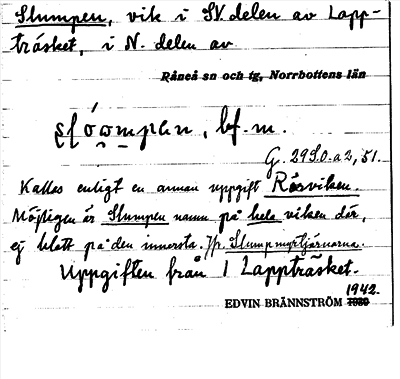 Slumpen, vik i SV delen av Lapp-
träsket, i N. delen av
Råneå sn och tg, Norrbottens län
bf. m.
G. 29S.0.a2,51.
Kallas enligt en annan uppgift Råsviken.
Möjligen är Slumpen namn på hela viken där,
ej blott på den innersta. Jfr. Slumpmyrtjärnarna.
Uppgiften från 1 Lappträsket.
1942.
EDVIN BRÄNNSTRÖM 1930